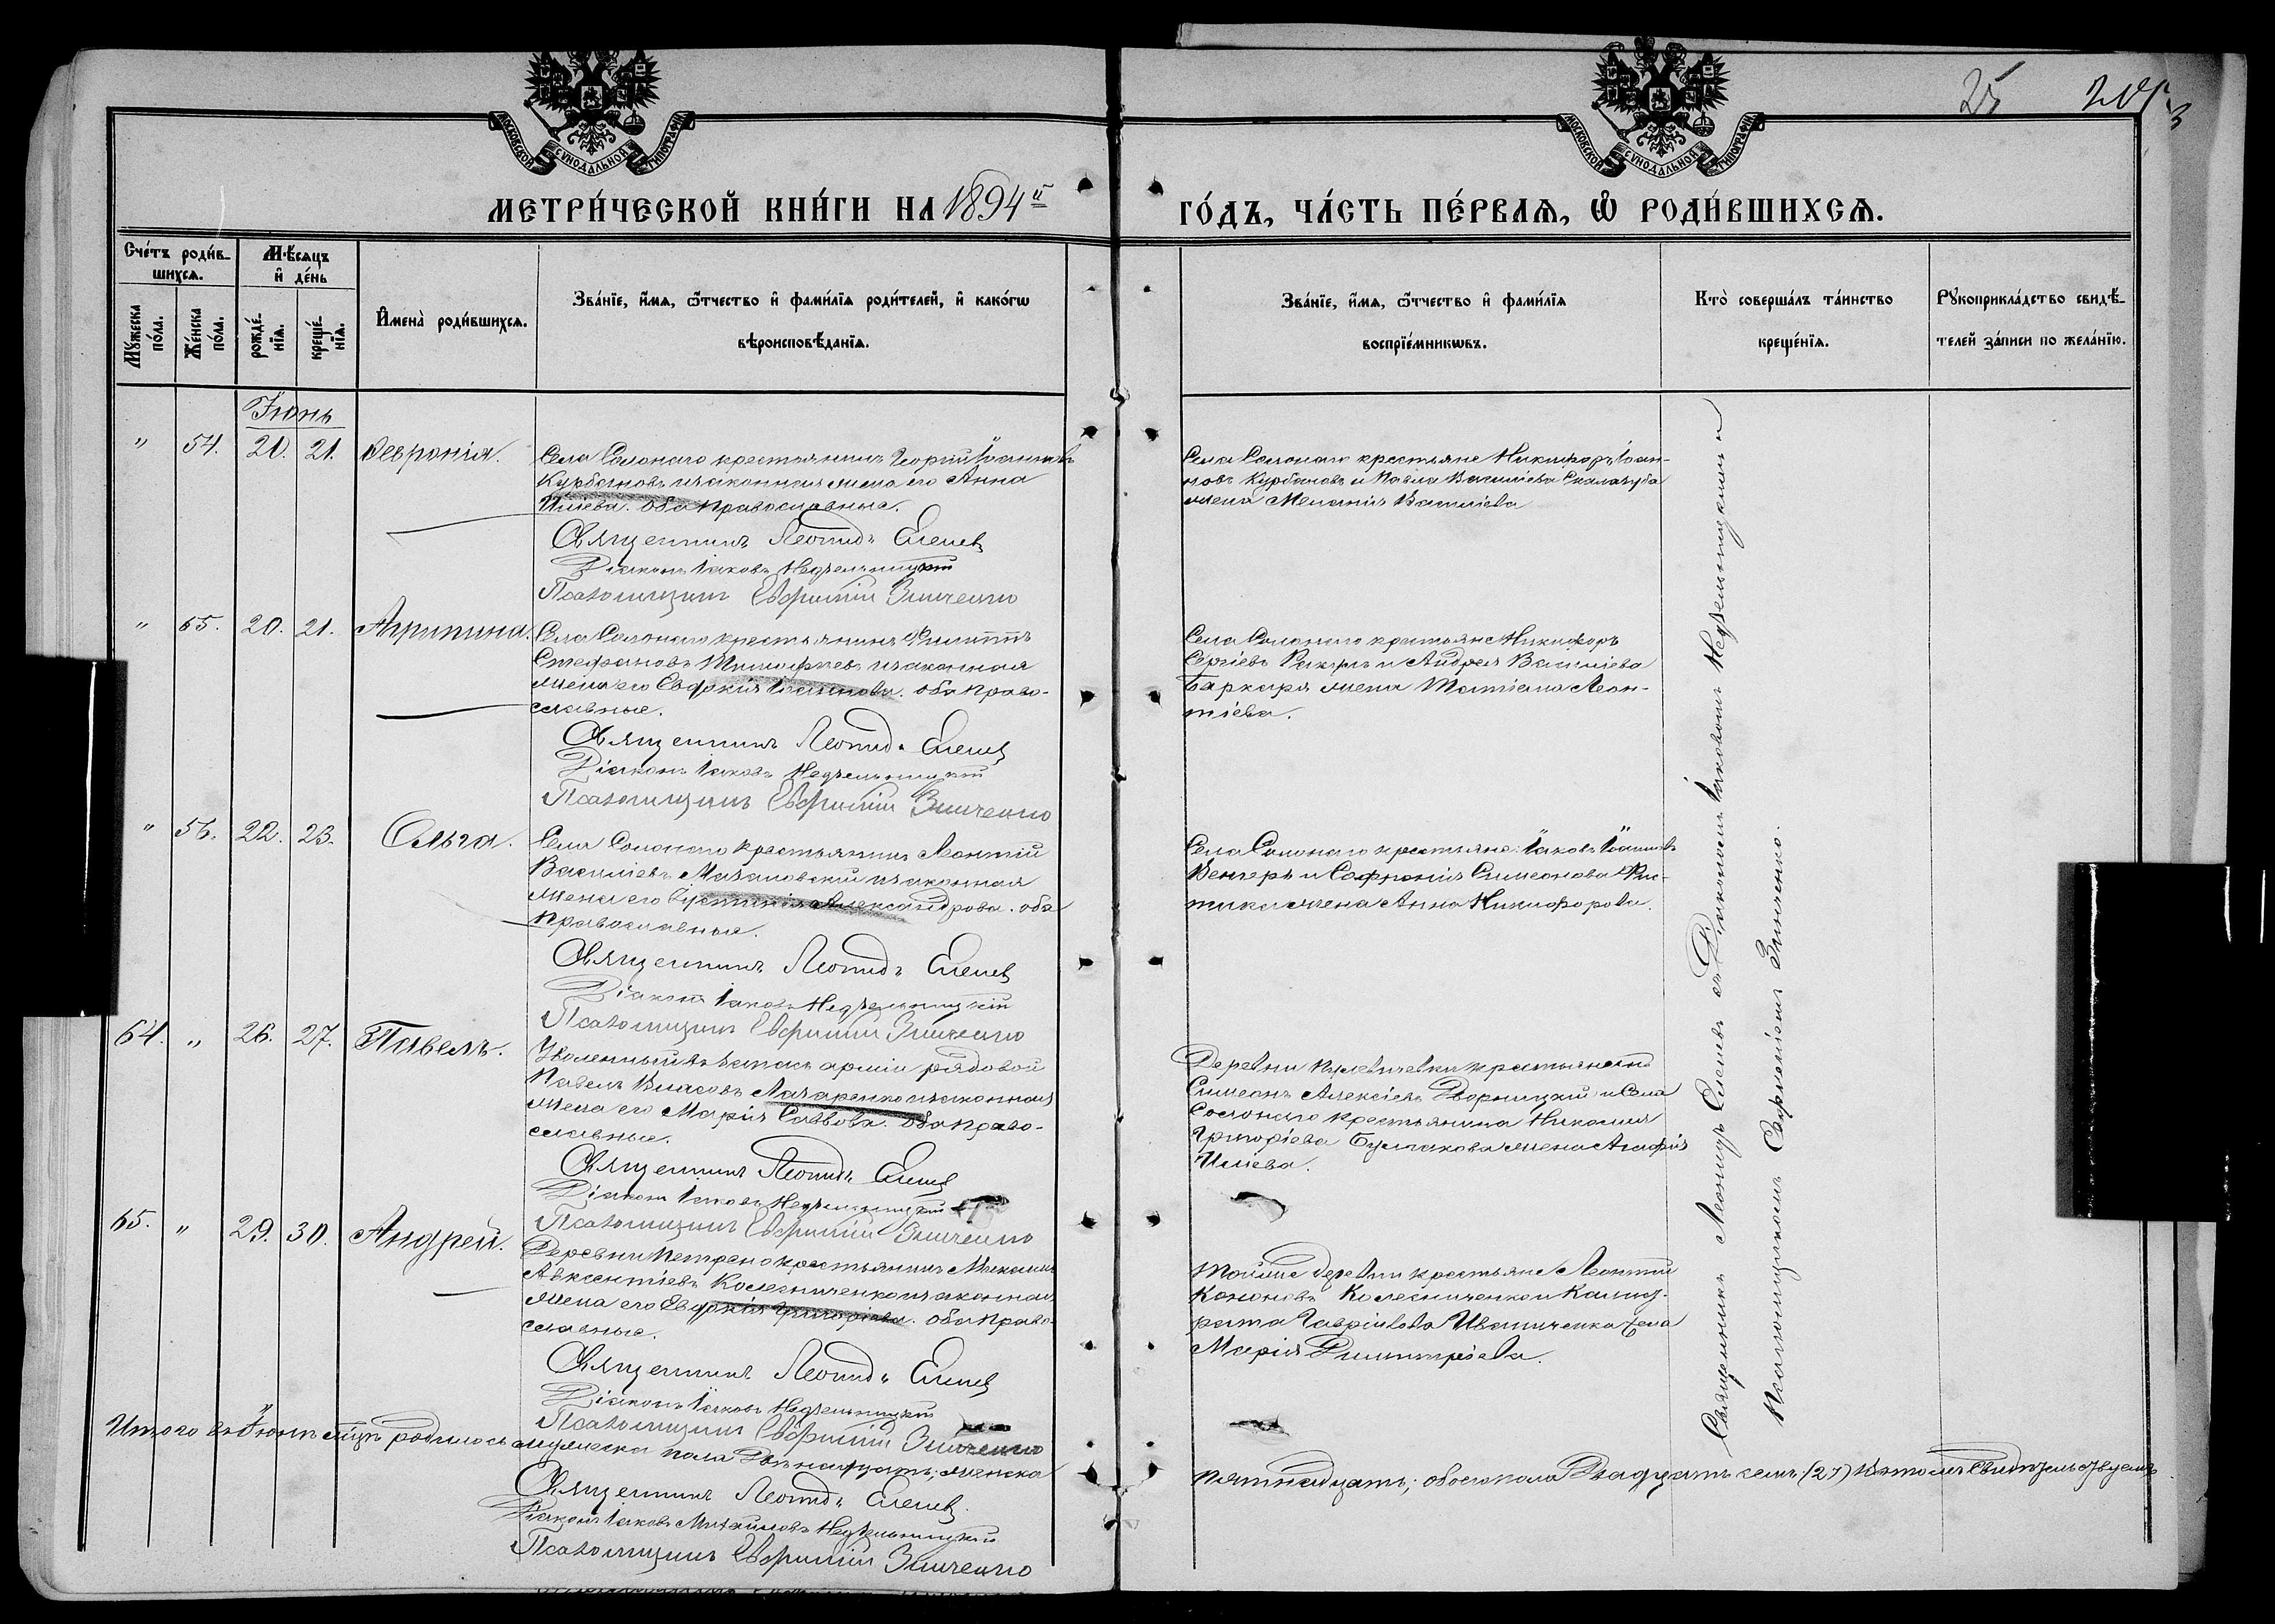 25
МОСКОВСКОЙ СѴНОДАЛЬНОЙ ТИПОГРАФІИ
МОСКОВСКОЙ СѴНОДАЛЬНОЙ ТИПОГРАФІИ
МЕТРИ́ЧЕСКОЙ КНИ́ГИ НА 1894й
ГО́ДЪ, ЧА́СТЬ ПЕ́РВАѦ, Ѡ РОДИ́ВШИХСѦ.
Сче́тъ роди́в-
шихсѧ.
Мꙋжеска по́ла.
Же́нска по́ла.
М҃ѣсѧцъ
и҆ де́нь
рожде́-
нїѧ.
креще́-
нїѧ.
И҆мена̀ роди́вшихсѧ.
Зва́нїе, и҆́мѧ, ѻ҆́тчество и҆ фами́лїѧ роди́телей, и҆ како́гѡ
вѣроисповѣ́данїѧ.
Зва́нїе, и҆́мѧ, ѻ҆́тчество и҆ фами́лїѧ
воспрїе́мникѡвъ.
Кто̀ соверша́лъ та́инство
креще́нїѧ.
Рꙋкоприкла́дство свидѣ́-
телей за́писи по жела́нїю.
Іюнь
" 54. 20. 21. Февронія.
Села Солонаго крестьянинъ Георгій Іоанновъ
Курбановъ и законная жена его Анна
Иліева. оба православные.
Священникъ Леонидъ Еленев
Діаконъ Іаковъ Недзельницкій
Псаломщикъ Евфимій Зинченко
Села Солонаго крестьяне Никифоръ Іоан-
новъ Курбановъ и Павла Василіева
жена Меланія Василіева
" 55. 20. 21. Агрипина.
Села Солонаго крестьянинъ Филиппъ
Стефановъ и законная
жена его Евдокія Іоаннова. оба право-
славные.
Священникъ Леонидъ Еленев
Діаконъ Іаковъ Недзельницкій
Псаломщикъ Евфимій Зинченко
Села Солонаго крестьяне Никифоръ
Сергіевъ и Андрея Василіева
жена Татіана Леон-
тіева.
" 56. 22. 23. Ольга.
Села Солонаго крестьянинъ Леонтій
Василіевъ и законная
жена его Іустинія Александрова. оба
православные.
Священникъ Леонидъ Еленев
Діаконъ Іаковъ Недзельницкій
Псаломщикъ Евфимій Зинченко
Села Солонаго крестьяне: Іаковъ Іоанновъ
Венгеръ и Софронія Симеонова
жена Анна Никифорова.
64. " 26. 27. Павелъ.
Уволенный въ запасъ арміи рядовой
Павелъ Власовъ Лазаренко и законная
жена его Марія Саввова. оба право-
славные.
Священникъ Леонидъ Еленев
Діаконъ Іаковъ Недзельницкій
Псаломщикъ Евфимій Зинченко
Деревни крестьянинъ
Симеонъ Алексіевъ Дворницкій и Села
Солонаго крестьянина Николая
Григоріева Булгакова жена Агафія
Иліева.
65. " 29. 30. Андрей.
Деревни крестьянинъ Максимъ
Авксентіевъ Колесниченко и законная
жена его Евдокія Григоріева. оба право-
славные.
Священникъ Леонидъ Еленев
Діаконъ Іаковъ Недзельницкій
Псаломщикъ Евфимій Зинченко
Той же деревни крестьяне Леонтій
Кононовъ Колесниченко и
Гавріилова Иваниченка жена
Марія Димитріева.
Священникъ Леонидъ Елевъ съ Діакономъ Іаковомъ Недзельницкимъ и
Псаломщикомъ Зинченко.
Итого въ Іюнѣ мцѣ родилось мужеска пола Двѣнадцать; женска
пятнадцать; обоего пола Двадцать семь (27) Въ томъ Свидѣтельствуемъ
Священникъ Леонидъ Елевев.
Діаконъ Іаковъ Михайловъ Недзельницкій
Псаломщикъ Евфимій Зинченко